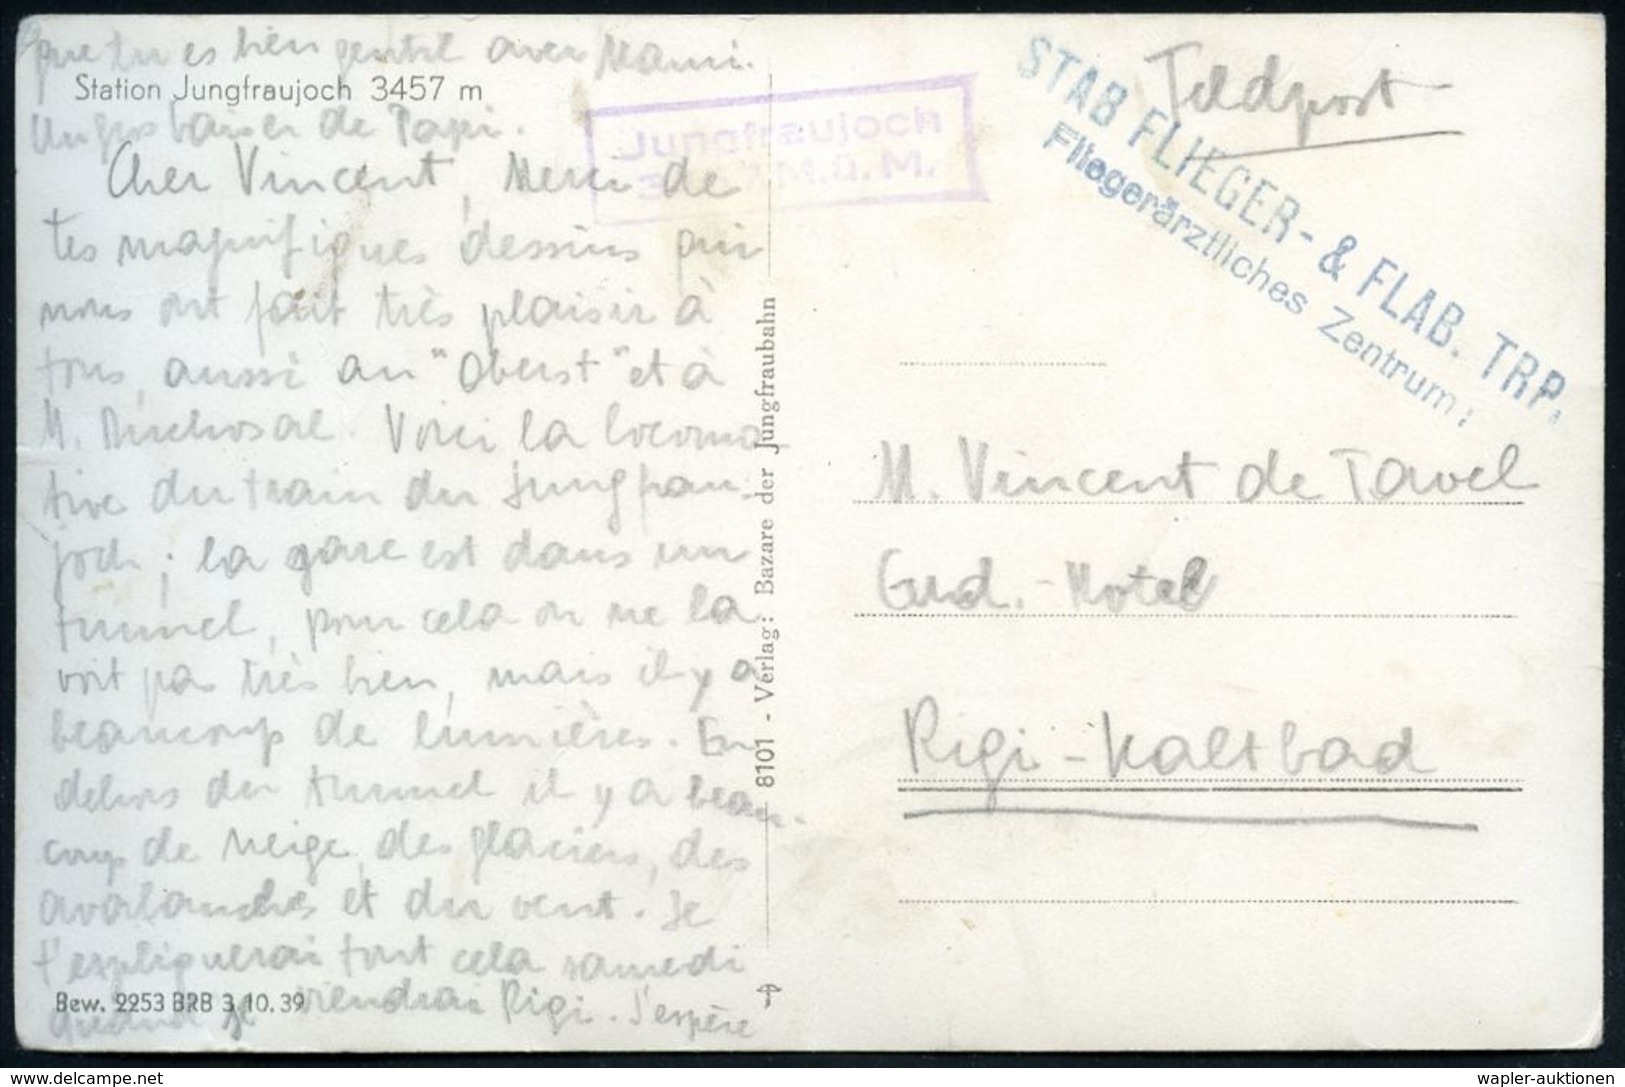 que tu es bien gentil avec Mami.
Station Jungfraujoch 3457 m
Un gros baiser de Papi.
Cher Vincent, Merci de
tes magnifiques dessins qui
nous ont fait très plaisir à
tous, aussi au "Oberst" et à
M. Voici la locomo
tive du train du Jungfrau-
joch ; la gare est dans un
tunnel, pour cela on ne la
voit pas très bien, mais il y a
beaucoup de lumières. En
dehors du tunnel il y a beau-
coup de neige, des glaciers, des
avalanches et du vent. Je
t'expliquerai tout cela samedi
Bew. 2253 BRB 3.10.39
quand je viendrai Rigi. J'espère
8101 - Verlag: Bazare der Jungfraubahn
Jungfraujoch
M.ü.M.
Feldpost
STAB FLIEGER- & FLAB. TRP.
Fliegerärztliches Zentrum:
M. Vincent de Tavel
Grd.-Hotel
Rigi-Kaltbad
delcampe.net
wapler-auktionen